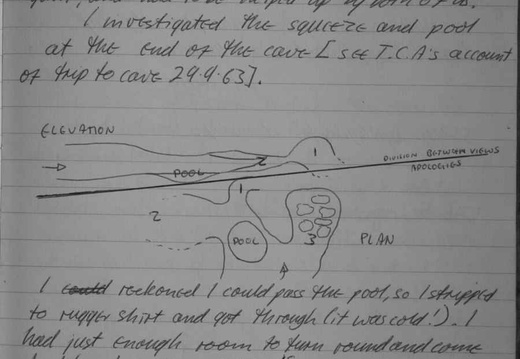 I investigated the squeeze and pool
at the end of the cave [see T.C.A's account
of trip to cave 29.9.63].
ELEVATION
1
2
POOL
DIVISION BETWEEN VIEWS
APOLOGIES
1
2
POOL
3
PLAN
I could reckoned I could pass the pool, so I stripped
to rugger shirt and got through (it was cold!). I
had just enough room to turn round and come